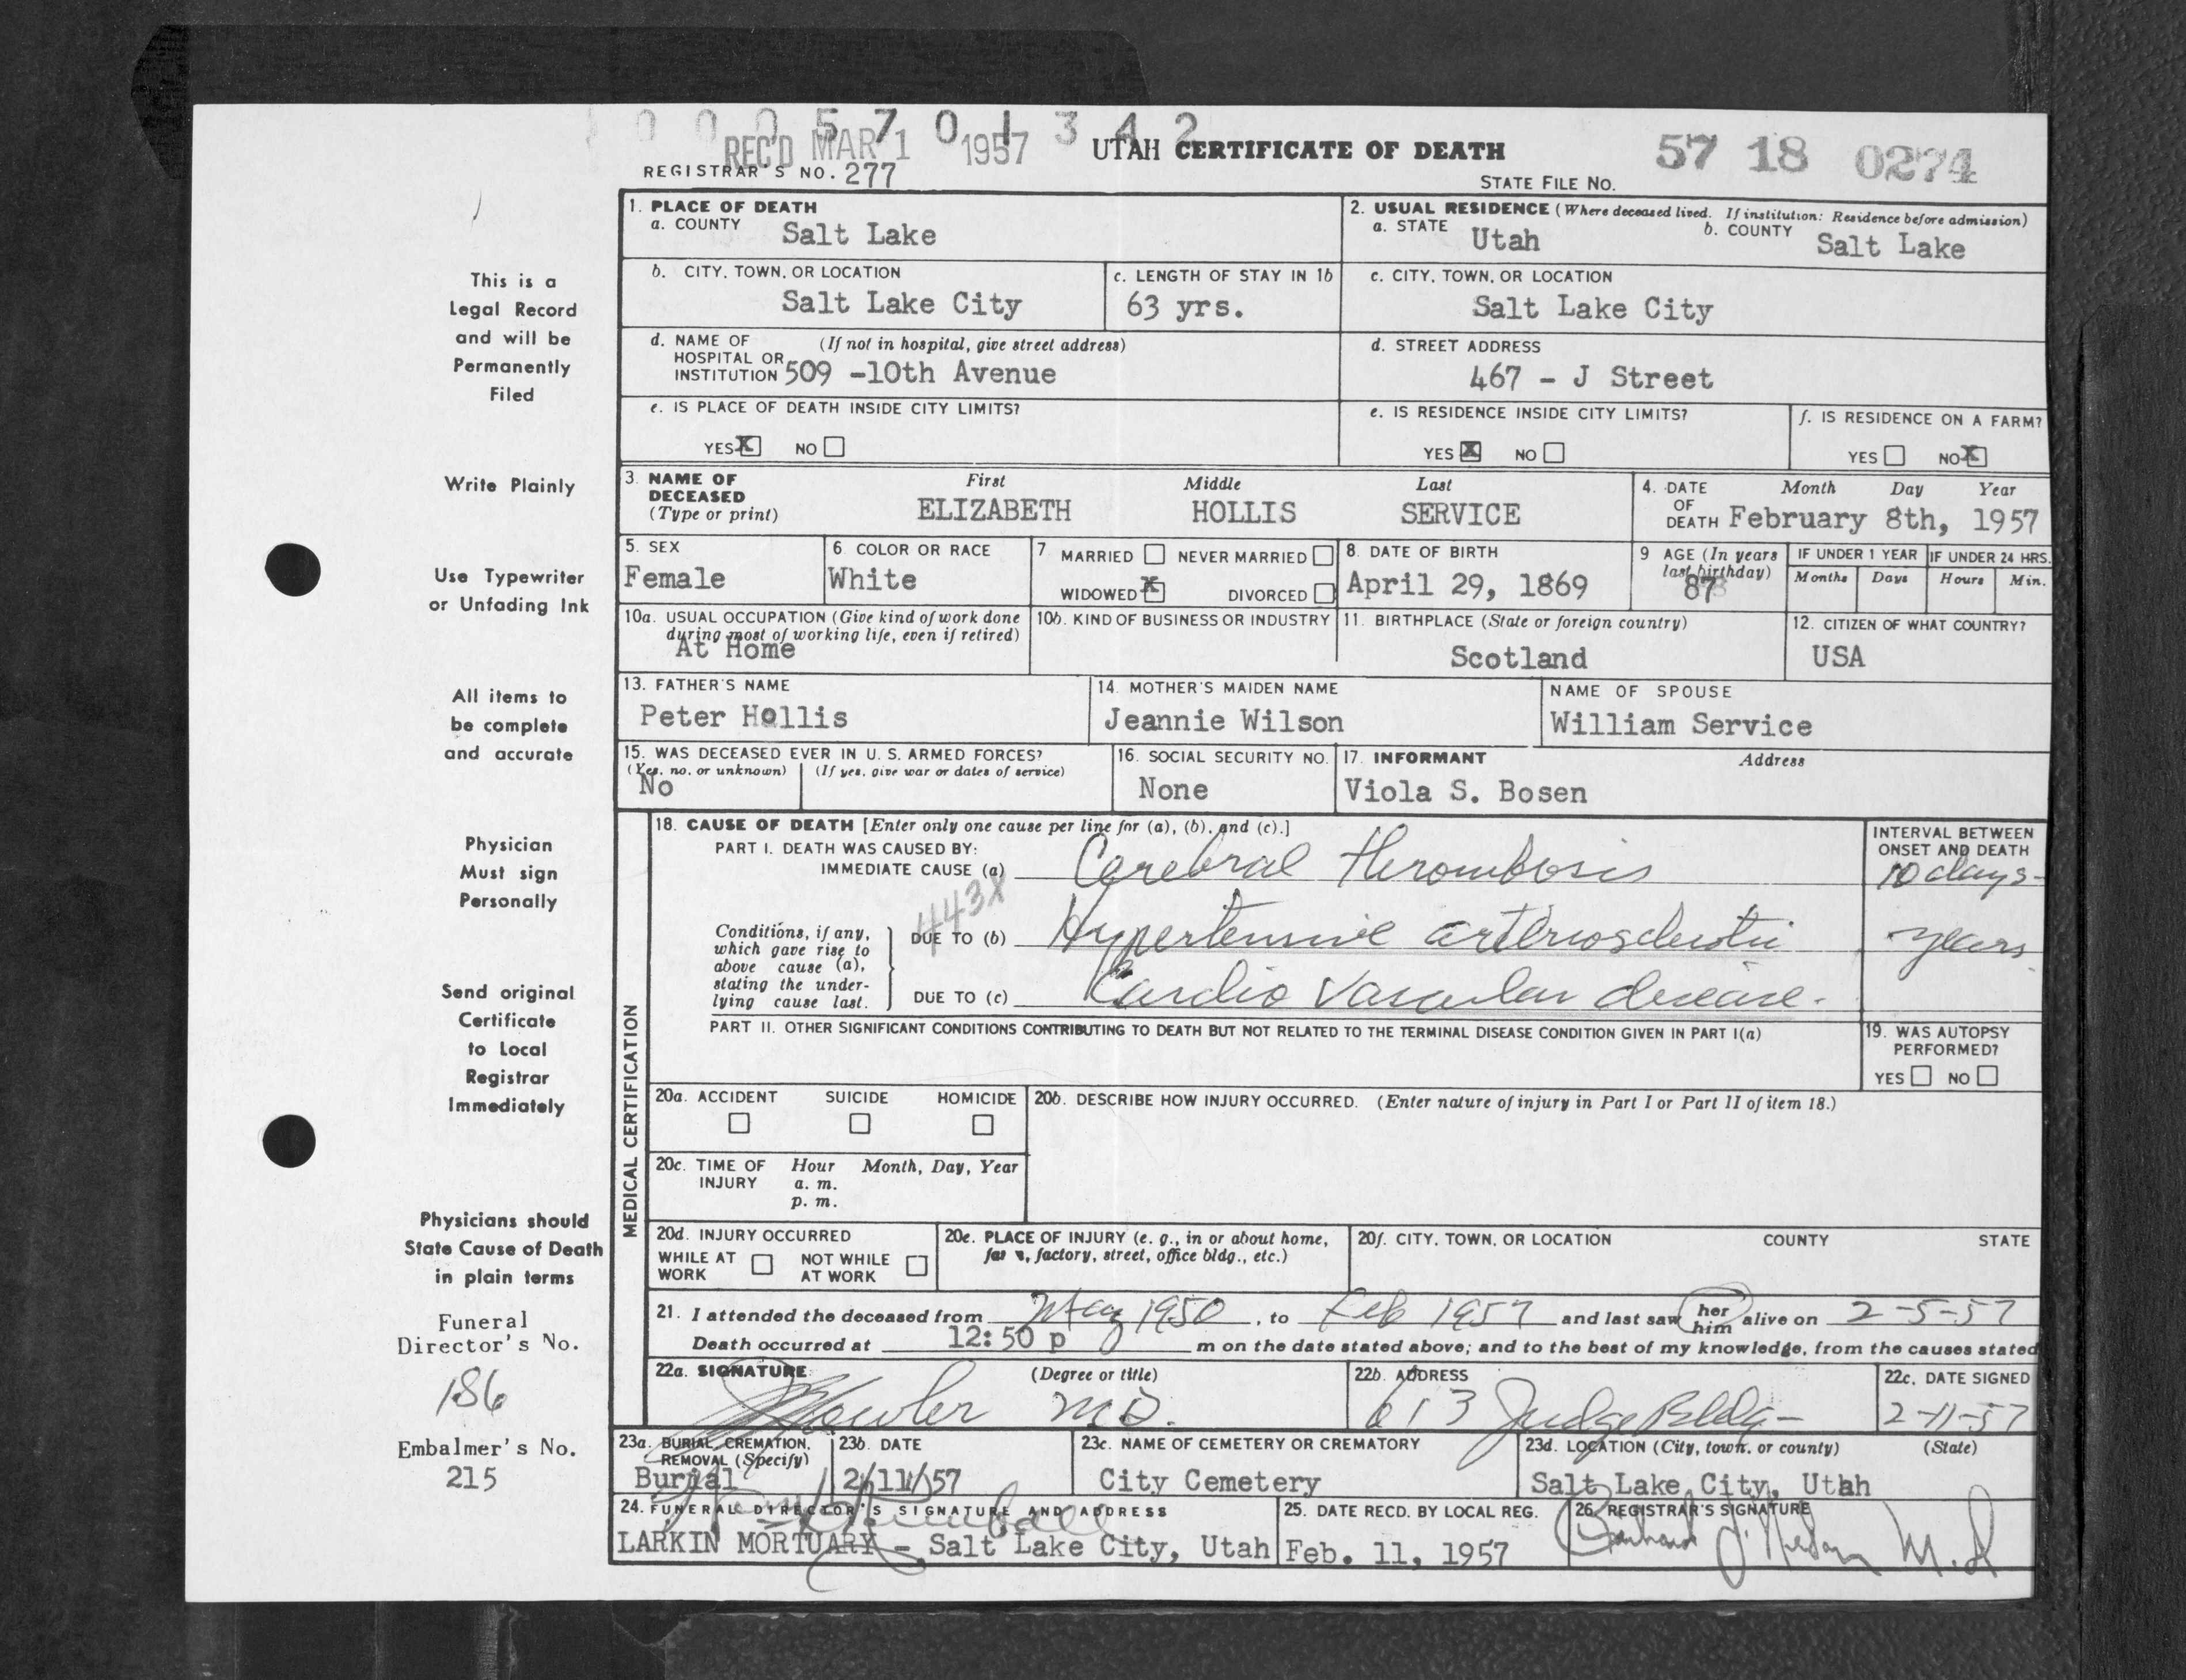 0 0 0 5 7 0 1 3 4 2
REC'D MAR 1 1957 UTAH CERTIFICATE OF DEATH 57 18 0274
REGISTRAR'S NO. 277 STATE FILE NO.
This is a
Legal Record
and will be
Permanently
Filed
Write Plainly
Use Typewriter
or Unfading Ink
All items to
be complete
and accurate
Physician
Must sign
Personally
Send original
Certificate
to Local
Registrar
Immediately
Physicians should
State Cause of Death
in plain terms
Funeral
Director's No.
186
Embalmer's No.
215
1. PLACE OF DEATH
a. COUNTY Salt Lake
2. USUAL RESIDENCE (Where deceased lived. If institution: Residence before admission)
a. STATE Utah b. COUNTY Salt Lake
b. CITY, TOWN, OR LOCATION
Salt Lake City
c. LENGTH OF STAY IN 1b
63 yrs.
c. CITY, TOWN, OR LOCATION
Salt Lake City
d. NAME OF (If not in hospital, give street address)
HOSPITAL OR
INSTITUTION 509 -10th Avenue
d. STREET ADDRESS
467 - J Street
e. IS PLACE OF DEATH INSIDE CITY LIMITS?
YES X NO
e. IS RESIDENCE INSIDE CITY LIMITS?
YES X NO
f. IS RESIDENCE ON A FARM?
YES NO X
3. NAME OF First Middle Last
DECEASED
(Type or print) ELIZABETH HOLLIS SERVICE
4. DATE Month Day Year
OF
DEATH February 8th, 1957
5. SEX
Female
6 COLOR OR RACE
White
7 MARRIED NEVER MARRIED
WIDOWED X DIVORCED
8. DATE OF BIRTH
April 29, 1869
9 AGE (In years
last birthday)
87
IF UNDER 1 YEAR IF UNDER 24 HRS.
Months Days Hours Min.
10a. USUAL OCCUPATION (Give kind of work done
during most of working life, even if retired)
At Home
10b. KIND OF BUSINESS OR INDUSTRY
11. BIRTHPLACE (State or foreign country)
Scotland
12. CITIZEN OF WHAT COUNTRY?
USA
13. FATHER'S NAME
Peter Hollis
14. MOTHER'S MAIDEN NAME
Jeannie Wilson
NAME OF SPOUSE
William Service
15. WAS DECEASED EVER IN U. S. ARMED FORCES?
(Yes, no, or unknown) (If yes, give war or dates of service)
No
16. SOCIAL SECURITY NO.
None
17. INFORMANT Address
Viola S. Bosen
MEDICAL CERTIFICATION
18. CAUSE OF DEATH [Enter only one cause per line for (a), (b), and (c).]
PART I. DEATH WAS CAUSED BY:
IMMEDIATE CAUSE (a) Cerebral thrombosis
INTERVAL BETWEEN
ONSET AND DEATH
10 days
443X
Conditions, if any,
which gave rise to
above cause (a),
stating the under-
lying cause last.
DUE TO (b) Hypertensive arteriosclerotic years
DUE TO (c) Cardio Vascular disease.
PART II. OTHER SIGNIFICANT CONDITIONS CONTRIBUTING TO DEATH BUT NOT RELATED TO THE TERMINAL DISEASE CONDITION GIVEN IN PART I(a)
19. WAS AUTOPSY
PERFORMED?
YES NO
20a. ACCIDENT SUICIDE HOMICIDE
20b. DESCRIBE HOW INJURY OCCURRED. (Enter nature of injury in Part I or Part II of item 18.)
20c. TIME OF Hour Month, Day, Year
INJURY a. m.
p. m.
20d. INJURY OCCURRED
WHILE AT NOT WHILE
WORK AT WORK
20e. PLACE OF INJURY (e. g., in or about home,
farm, factory, street, office bldg., etc.)
20f. CITY, TOWN, OR LOCATION COUNTY STATE
21. I attended the deceased from May 1950, to Feb 1957 and last saw her him alive on 2-5-57
Death occurred at 12:50 p m on the date stated above; and to the best of my knowledge, from the causes stated
22a. SIGNATURE (Degree or title)
Fowler M.D.
22b. ADDRESS
613 Judge Bldg
22c. DATE SIGNED
2-11-57
23a. BURIAL, CREMATION,
REMOVAL (Specify)
Burial
23b. DATE
2/11/57
23c. NAME OF CEMETERY OR CREMATORY
City Cemetery
23d. LOCATION (City, town, or county) (State)
Salt Lake City, Utah
24. FUNERAL DIRECTOR'S SIGNATURE AND ADDRESS
Kimball
LARKIN MORTUARY - Salt Lake City, Utah
25. DATE RECD. BY LOCAL REG.
Feb. 11, 1957
26. REGISTRAR'S SIGNATURE
M.D